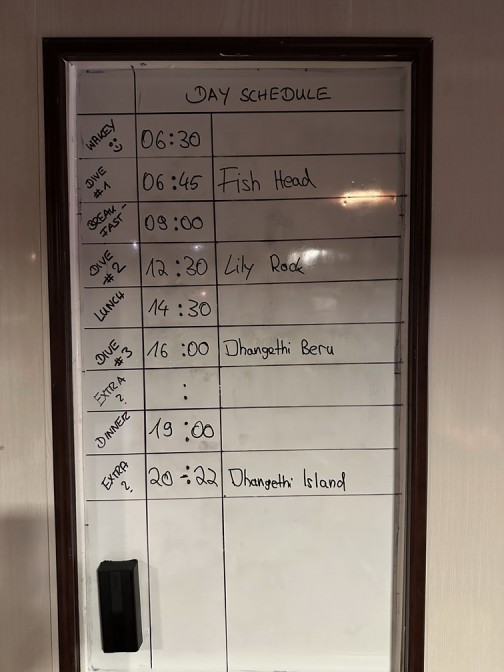 DAY SCHEDULE
WAKEY 06:30
DIVE #1 06:45 Fish Head
BREAK-FAST 09:00
DIVE #2 12:30 Lily Rock
LUNCH 14:30
DIVE #3 16:00 Dhangethi Beru
EXTRA ? :
DINNER 19:00
EXTRA ? 20÷22 Dhangethi Island